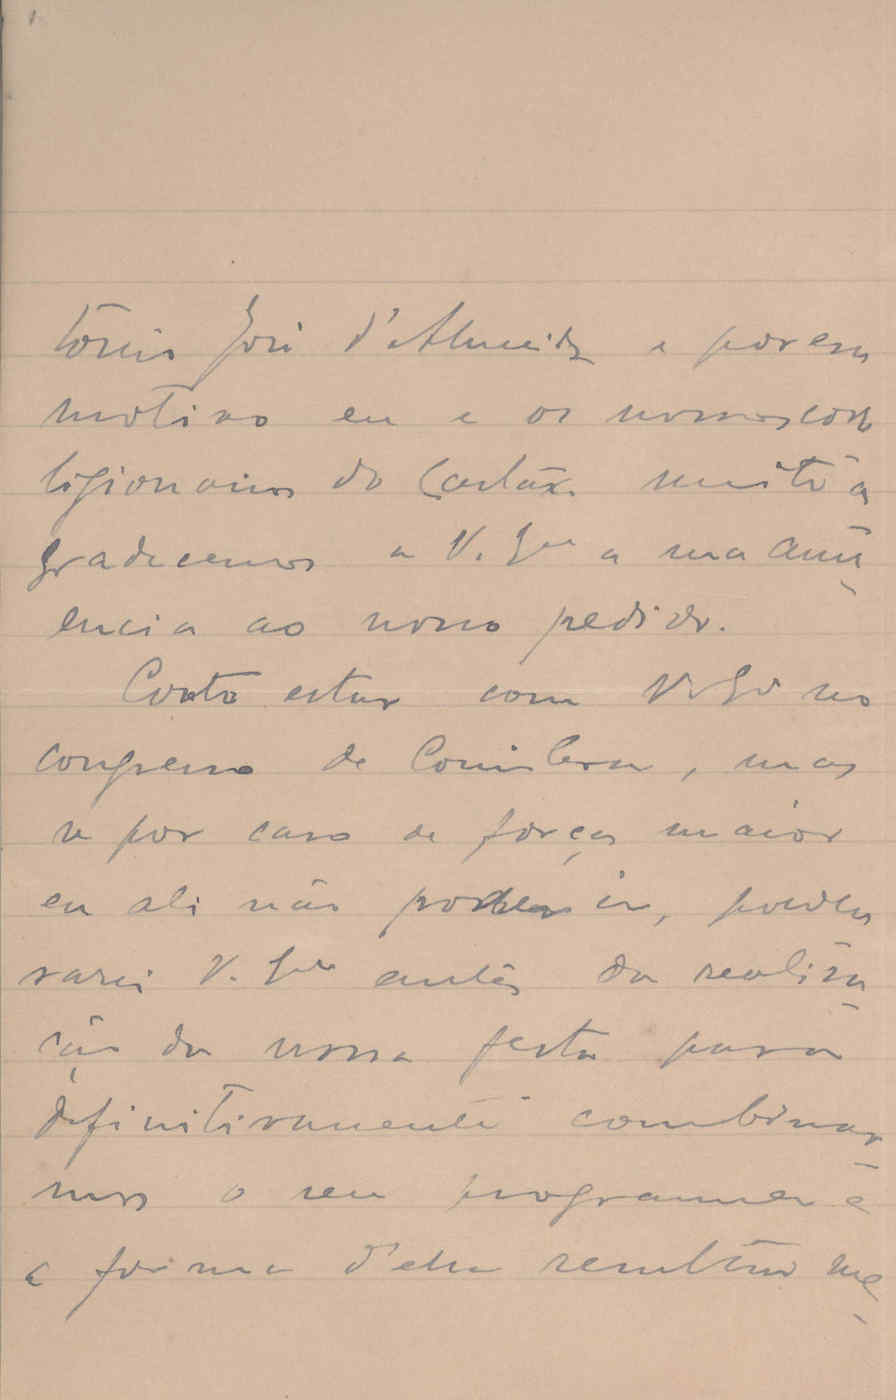 tonio José d'Almeida e por esse
motivo eu e os nossos corre
ligionarios do Cartaxo muito a
gradecemos a V. Exª a sua annu
encia ao nosso pedido.
Conto estar com V. Exª no
congresso de Coimbra, mas
se por caso de força maior
eu ali não poder ir, procu
rarei V. Exª antes da realisa
ção da nossa festa para
definitivamente combinar
mos o seu programma e
a forma d'ella resultar me